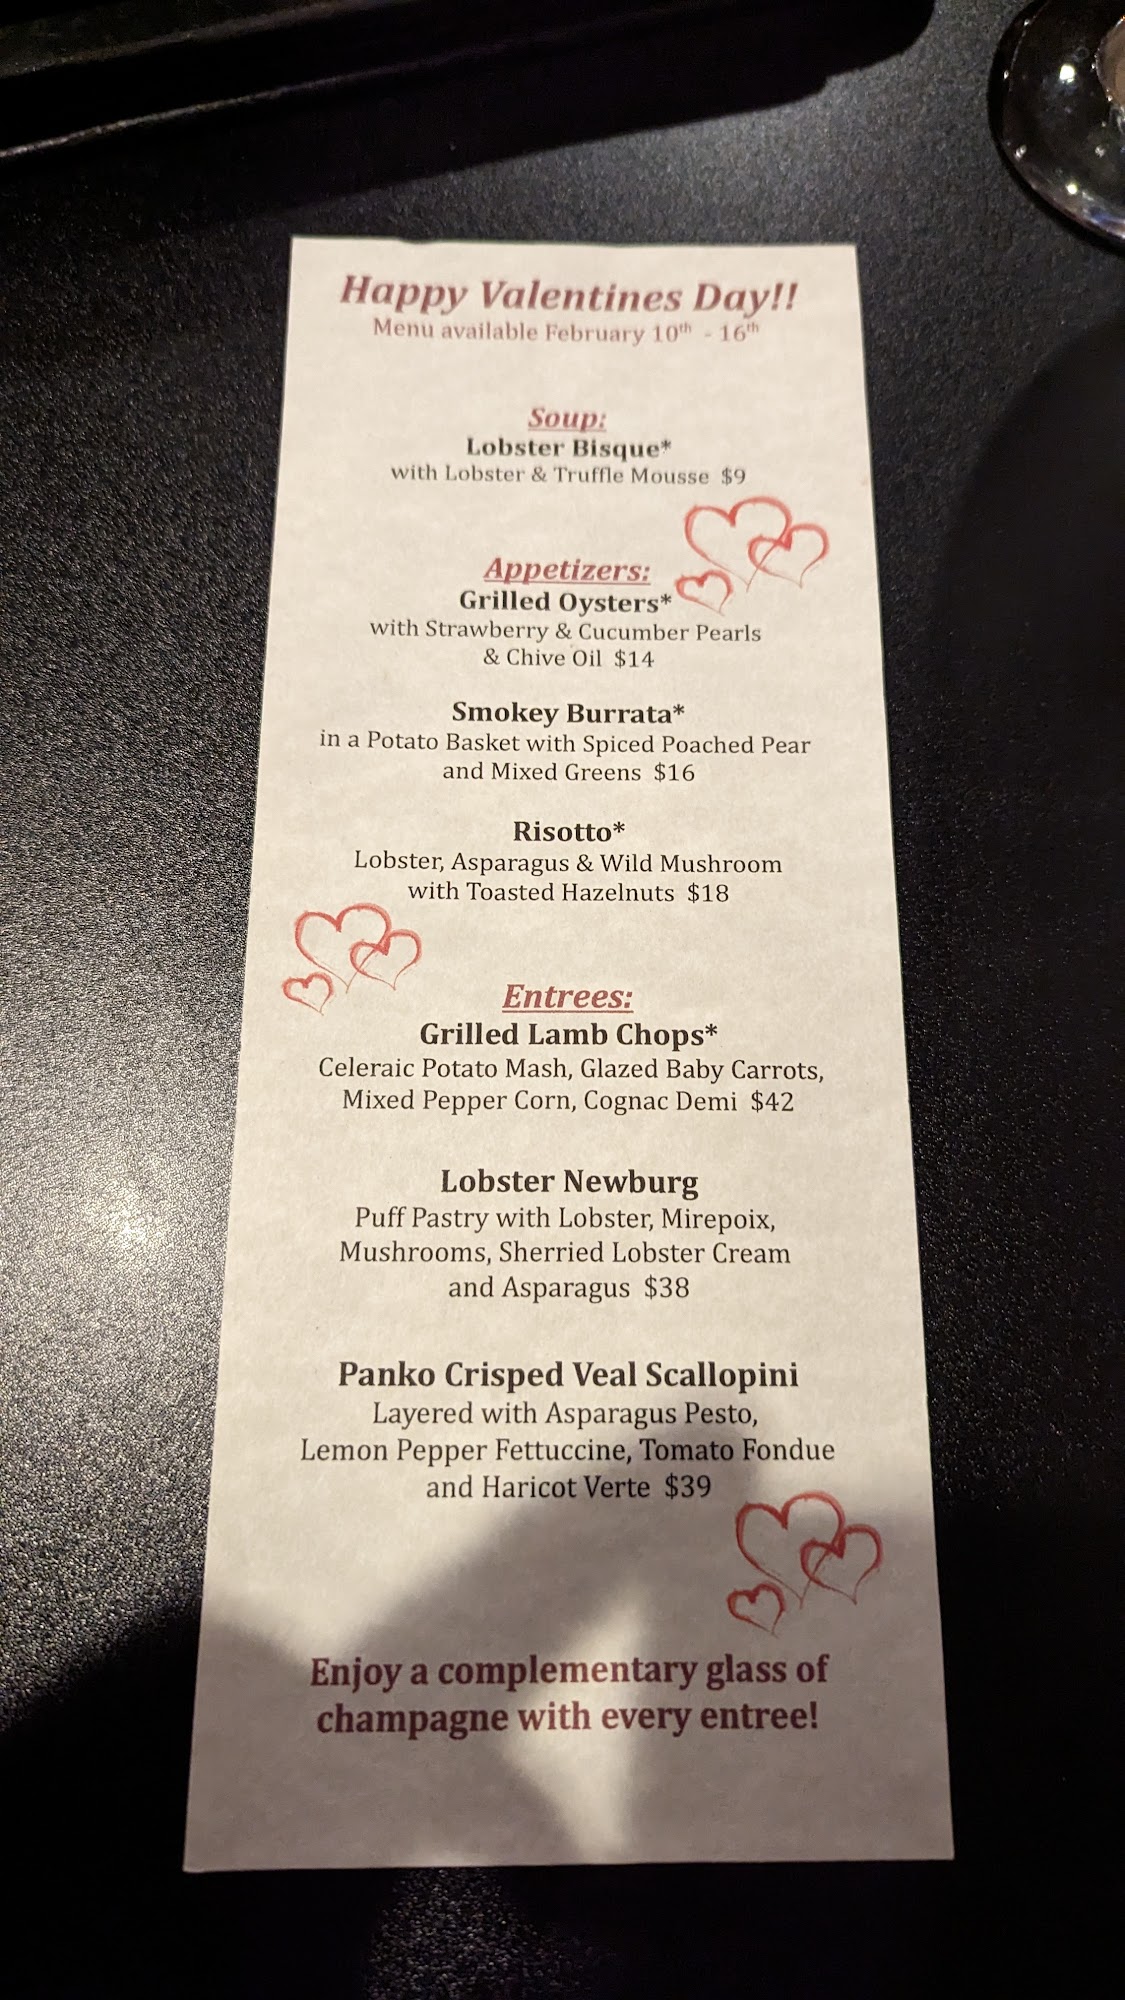 Happy Valentines Day!!
Menu available February 10th - 16th
Soup:
Lobster Bisque*
with Lobster & Truffle Mousse $9
Appetizers:
Grilled Oysters*
with Strawberry & Cucumber Pearls
& Chive Oil $14
Smokey Burrata*
in a Potato Basket with Spiced Poached Pear
and Mixed Greens $16
Risotto*
Lobster, Asparagus & Wild Mushroom
with Toasted Hazelnuts $18
Entrees:
Grilled Lamb Chops*
Celeraic Potato Mash, Glazed Baby Carrots,
Mixed Pepper Corn, Cognac Demi $42
Lobster Newburg
Puff Pastry with Lobster, Mirepoix,
Mushrooms, Sherried Lobster Cream
and Asparagus $38
Panko Crisped Veal Scallopini
Layered with Asparagus Pesto,
Lemon Pepper Fettuccine, Tomato Fondue
and Haricot Verte $39
Enjoy a complementary glass of
champagne with every entree!